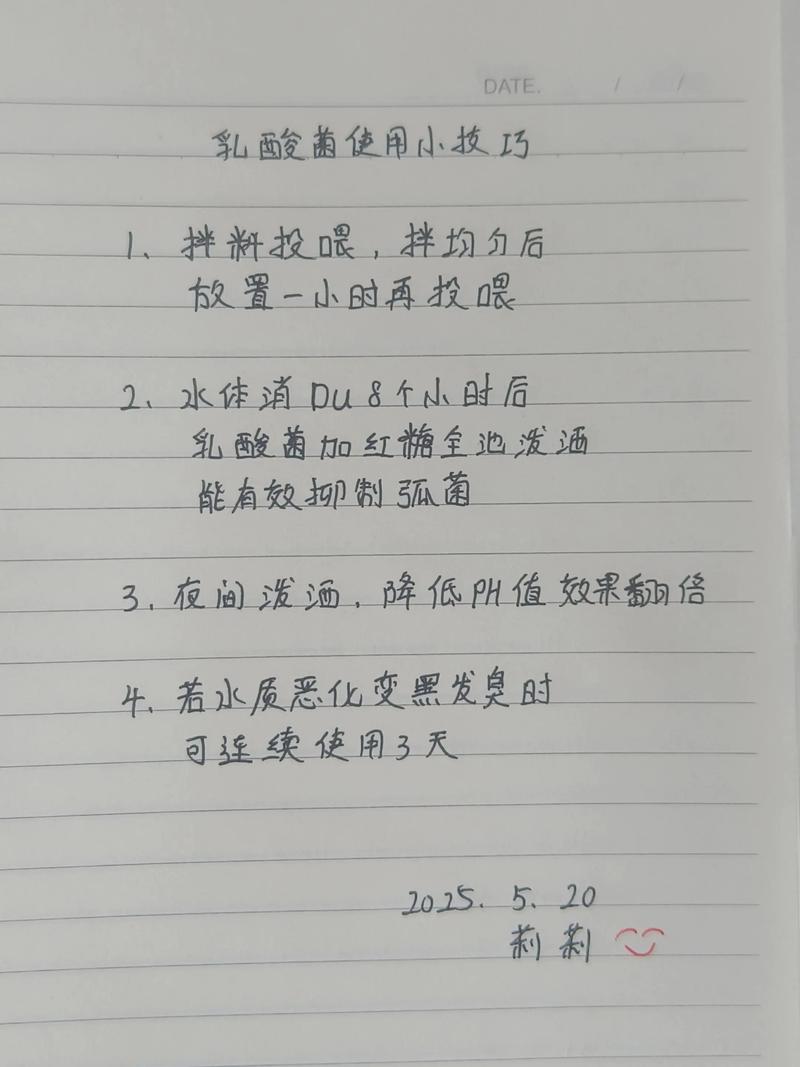 DATE. / /
乳酸菌使用小技巧
1、拌料投喂，拌均匀后
放置一小时再投喂
2、水体消DU8个小时后
乳酸菌加红糖全池泼洒
能有效抑制弧菌
3、夜间泼洒、降低PH值效果翻倍
4、若水质恶化变黑发臭时
可连续使用3天
2025.5.20
莉莉